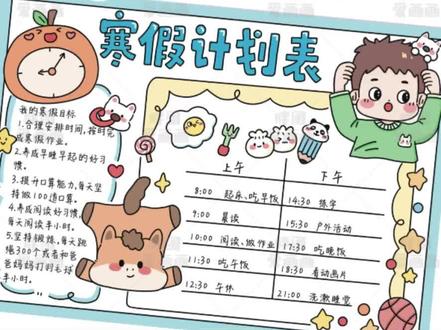 寒假计划表
我的寒假目标
1.合理安排时间,按时完
成寒假作业。
2.养成早睡早起的好习
惯。
3.提升口算能力,每天坚
持做100道口算。
4.养成阅读好习惯,
每天阅读半小时。
5.坚持锻炼,每天跳
绳300个或者和爸
爸妈妈打羽毛球
半小时。
上午
下午
8:00 起床、吃早饭
14:30 练字
9:00 晨读
15:30 户外活动
10:00 阅读、做作业
17:30 吃晚饭
11:30 吃午饭
18:30 看动画片
12:30 午休
21:00 洗漱睡觉